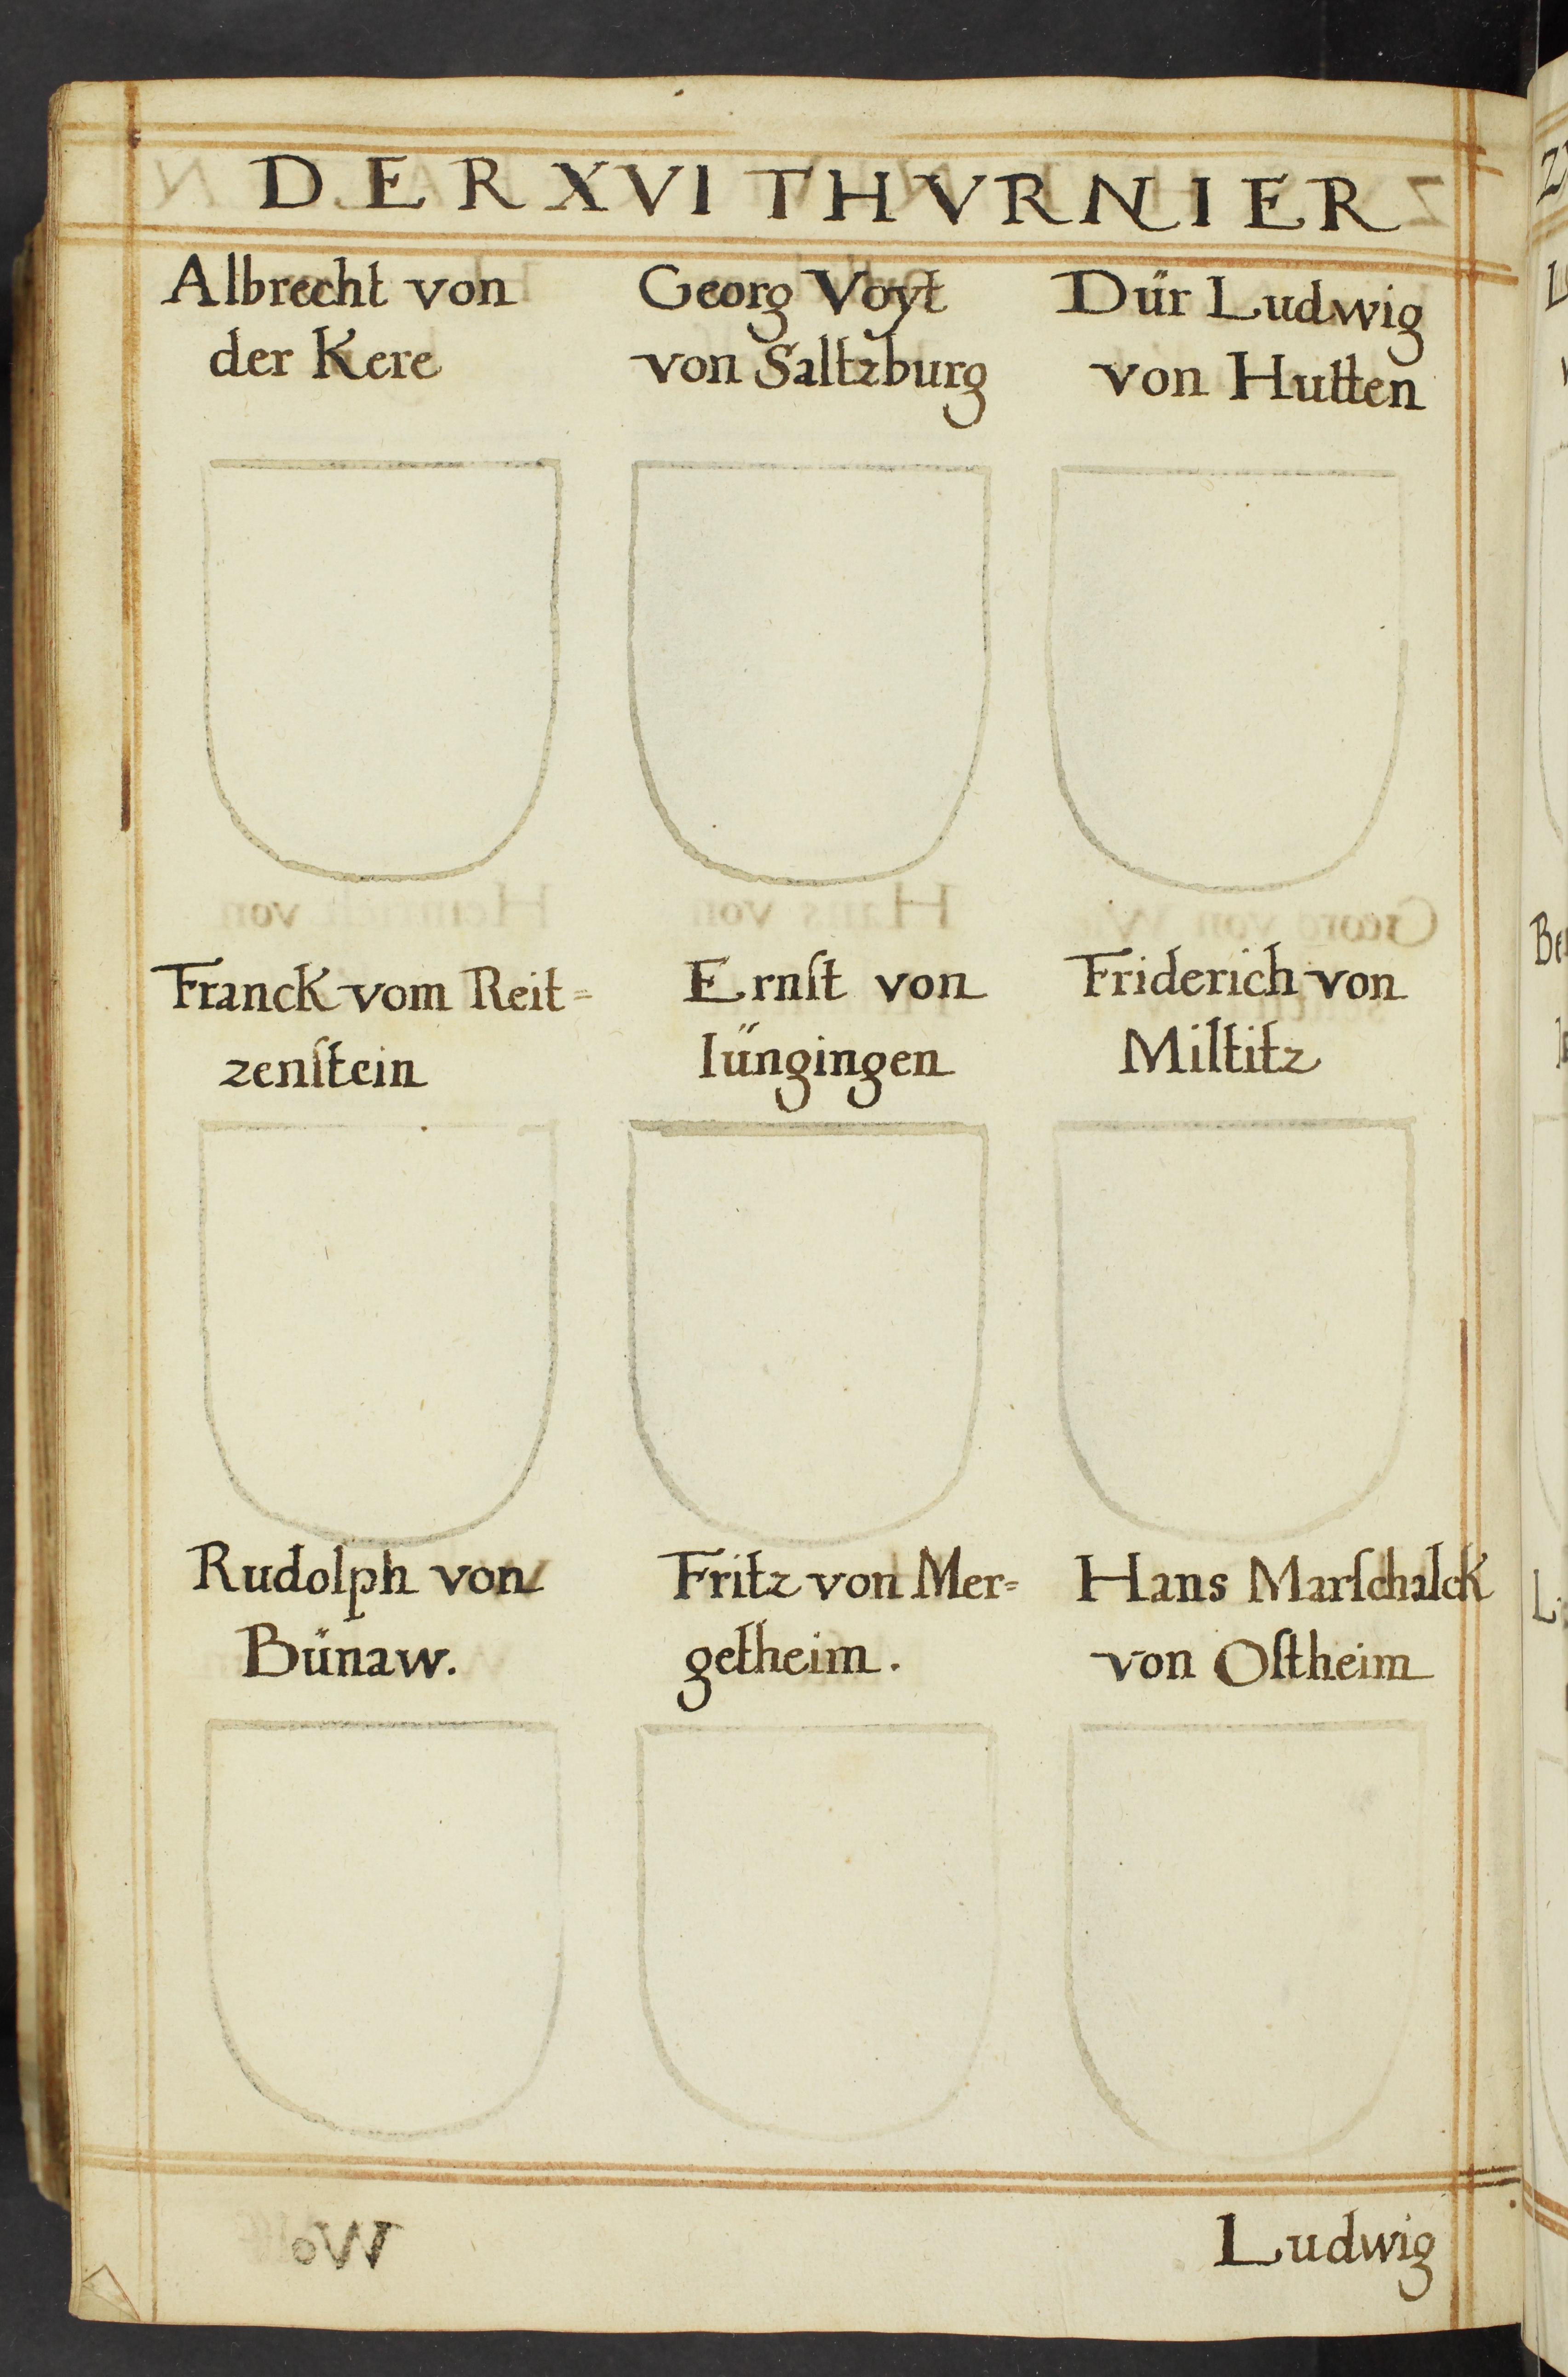 DER XVI THVRNIER
Albrecht von
der Kere
Georg Voyt
von Saltzburg
Dür Ludwig
von Hutten
Franck vom Reit=
zenſtein
Ernſt von
Iüngingen
Friderich von
Miltitz
Rudolph von
Bünaw.
Fritz von Mer=
getheim.
Hans Marſchalck
von Oſtheim
Ludwig